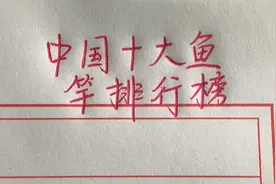 中国十大鱼
竿排行榜